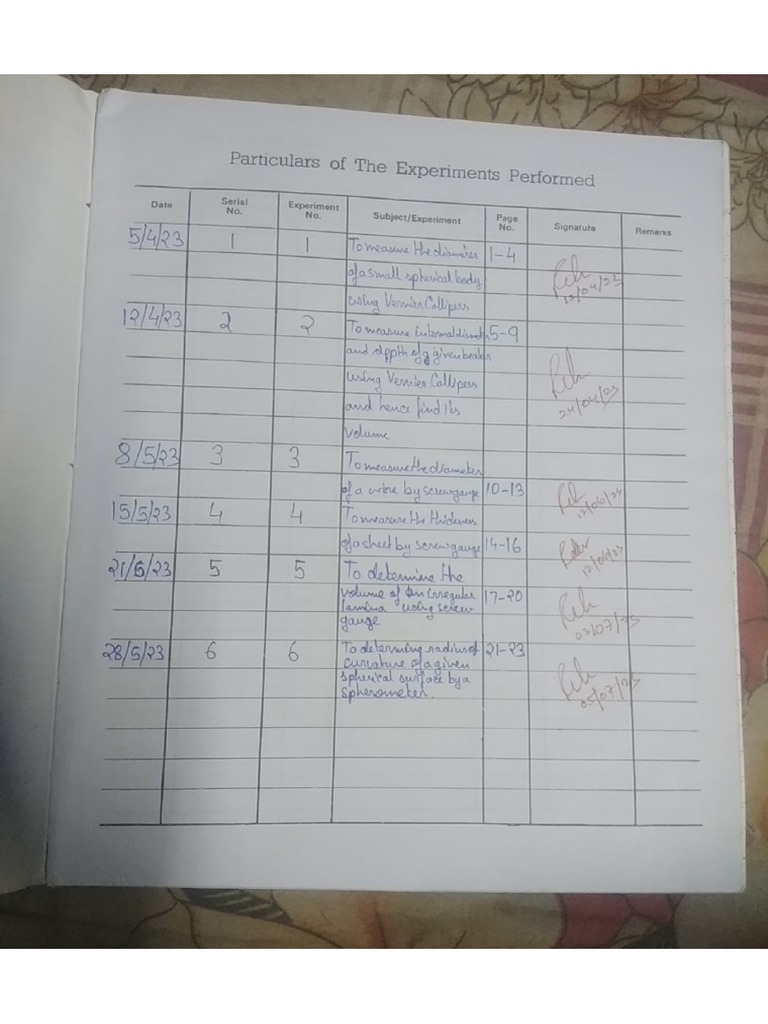 Particulars of The Experiments Performed
Date Serial No. Experiment No. Subject/Experiment Page No. Signature Remarks
5/4/23 1 1 To measure the diameter 1-4
of a small spherical body
12/04/23
using Vernier Callipers
12/4/23 2 2 To measure internal diameter 5-9
and depth of a given beaker
using Vernier Callipers
24/04/23
and hence find its
volume
8/5/23 3 3 To measure the diameter
of a wire by screw gauge 10-13
12/06/23
15/5/23 4 4 To measure the thickness
of a sheet by screw gauge 14-16
12/06/23
21/5/23 5 5 To determine the
volume of an irregular 17-20
lamina using screw
gauge
03/07/23
28/5/23 6 6 To determing radius of 21-23
curvature of a given
spherical surface by a
05/07/23
spherometer.